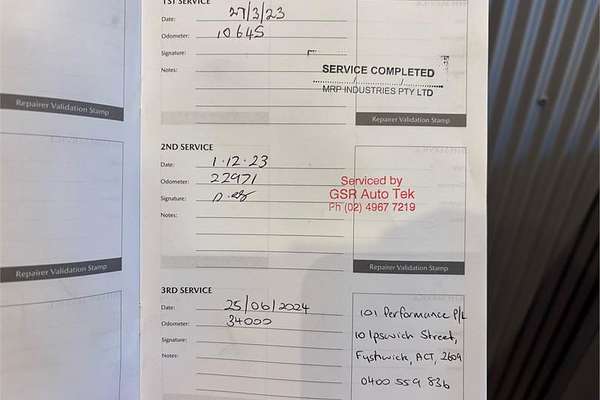 1ST SERVICE
Date: 27/3/23
Odometer: 10645
Signature:
Notes:
SERVICE COMPLETED
MRP INDUSTRIES PTY LTD
Repairer Validation Stamp
Repairer Validation Stamp
2ND SERVICE
Date: 1.12.23
Odometer: 22971
Signature:
Notes:
Serviced by
GSR Auto Tek
Ph (02) 4967 7219
Repairer Validation Stamp
Repairer Validation Stamp
3RD SERVICE
Date: 25/06/2024
Odometer: 34000
Signature:
Notes:
101 Performance P/L
10 Ipswich Street,
Fyshwick, ACT, 2609
0400 559 836